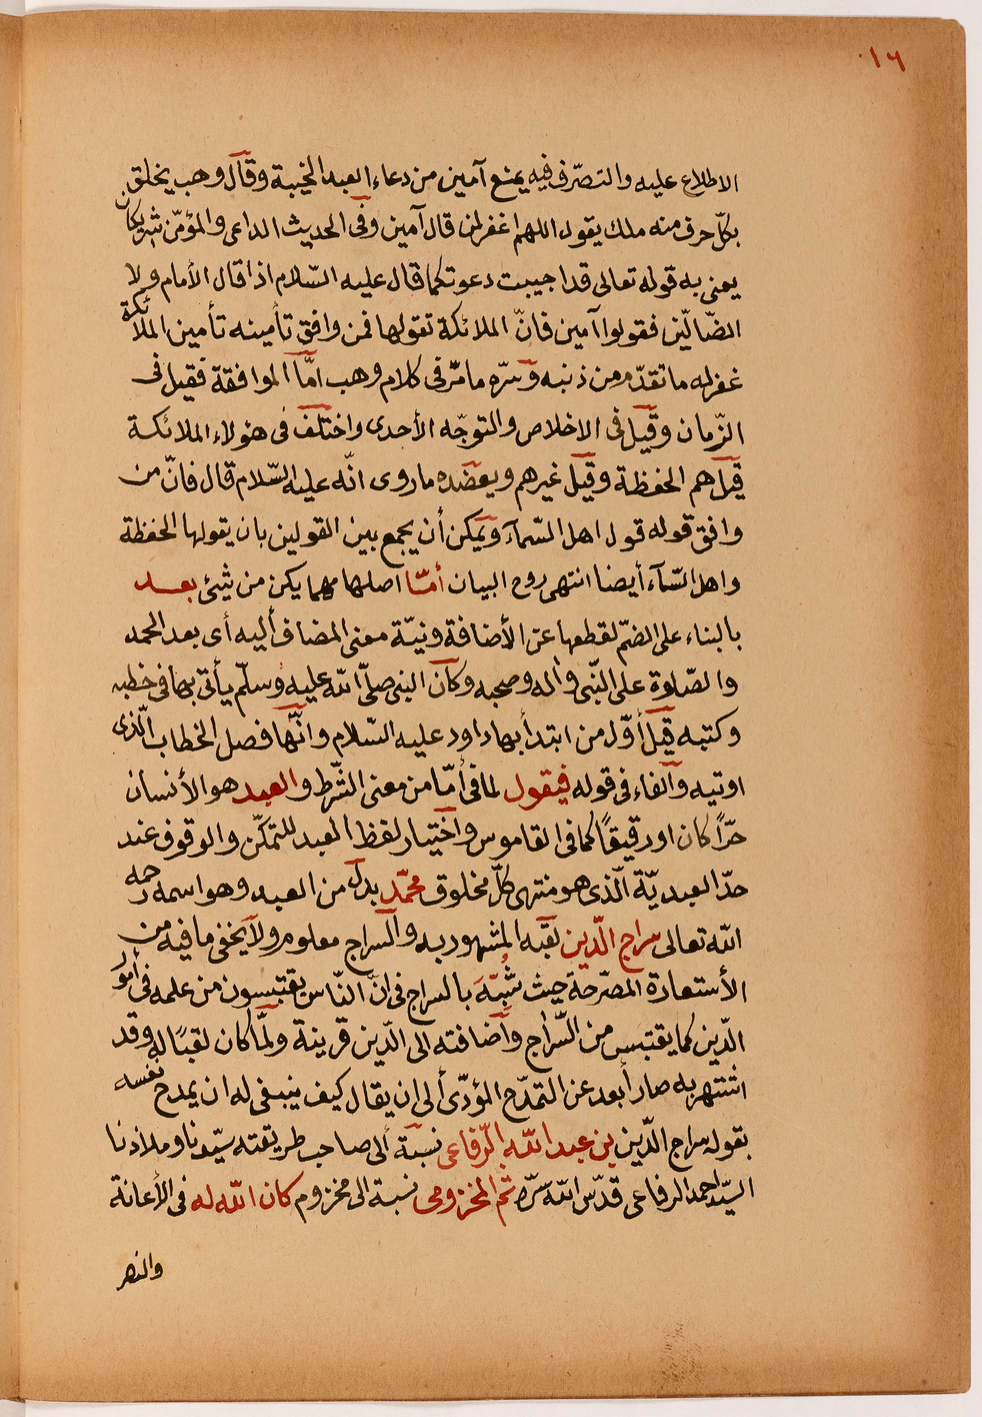 ١٦
الاطلاع عليه والتصرّف فيه يمنع آمين من دعاء العبد الخيبة وقال وهب يخلق
بكلّ حرف منه ملك يقول اللهم اغفر لمن قال آمين وفى الحديث الداعى والمؤمّن شريكان
يعنى به قوله تعالى قد اجيبت دعوتكما قال عليه السّلام اذا قال الأمام ولا
الضّالّين فقولوا آمين فانّ الملائكة تقولها فمن وافق تأمينه تأمين الملائكة
غفر له ما تقدّم من ذنبه وسرّه ما مرّ فى كلام وهب امّا الموافقة فقيل فى
الزّمان وقيل فى الاخلاص والتوجّه الأحدى واختلف فى هؤلاء الملائكة
قيل هم الحفظة وقيل غيرهم ويعضده ما روى انّه عليه السّلام قال فانّ من
وافق قوله قول اهل السّمآء ويمكن أن يجمع بين القولين بان يقولها الحفظة
واهل السّمآء أيضا انتهى روح البيان أمّا اصلها مهما يكن من شئ بعد
بالبناء على الضمّ لقطعها عن الأضافة ونيّة معنى المضاف أليه أى بعد الحمد
والصّلوة على النّبى وأله وصحبه وكان النبى صلّى الله عليه وسلّم يأتى بها فى خطبه
وكتبه قيل أوّل من ابتدأ بها داود عليه السّلام وانّها فصل الخطاب الّذى
اوتيه والفاء فى قوله فيقول لما فى أمّا من معنى الشّرط والعبد هو الأنسان
حرّا كان او رقيقًا كما فى القاموس واختيار لفظ العبد للتمكّن والوقوف عند
حدّ العبديّة الّذى هو منتهى كلّ مخلوق محمّد بدل من العبد وهو اسمه رحمه
الله تعالى سراج الّدين لقبه المشهور به والسراج معلوم ولا يخفى ما فيه من
الأستعارة المصّرحة حيث شُبّهَ بالسراج فى انّ النّاس يقتبسون من علمه فى أمور
الدّين كما يقتبس من السّراج وأضافته الى الدّين قرينة ولمّا كان لقبًا له وقد
اشتهر به صار أبعد عن التمدّح المؤدّى ألى ان يقال كيف ينبغى له ان يمدح نفسه
بقوله سراج الدّين بن عبد الله الرّفاعى نسبة ألى صاحب طريقته سيّدنا وملاذنا
السيّد احمد الرفاعى قدّس الله سرّه ثم المخزومى نسبة الى مخزوم كان الله له فى الأعانة
والنصر